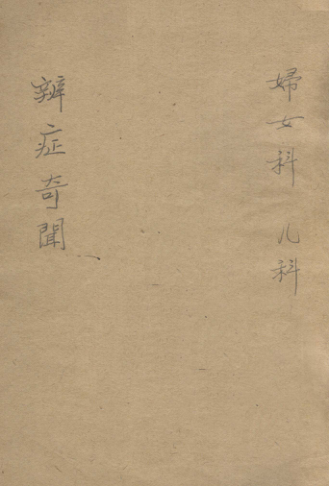 婦女科 儿科
辨症奇聞